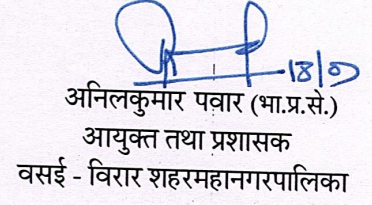 18/07
अनिलकुमार पवार (भा.प्र.से.)
आयुक्त तथा प्रशासक
वसई - विरार शहरमहानगरपालिका